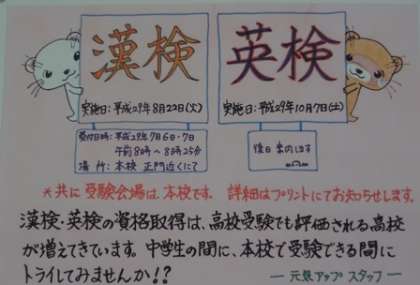 漢検
英検
実施日:平成29年8月22日(火)
実施日:平成29年10月7日(土)
受付日時:平成29年7月6日・7日
午前8時~8時25分
場所:本校 正門近くにて
後日案内します
*共に受験会場は、本校です。詳細はプリントにてお知らせします。
漢検・英検の資格取得は、高校受験でも評価される高校
が増えてきています。中学生の間に、本校で受験できる間に
トライしてみませんか!?
ー元気アップスタッフー